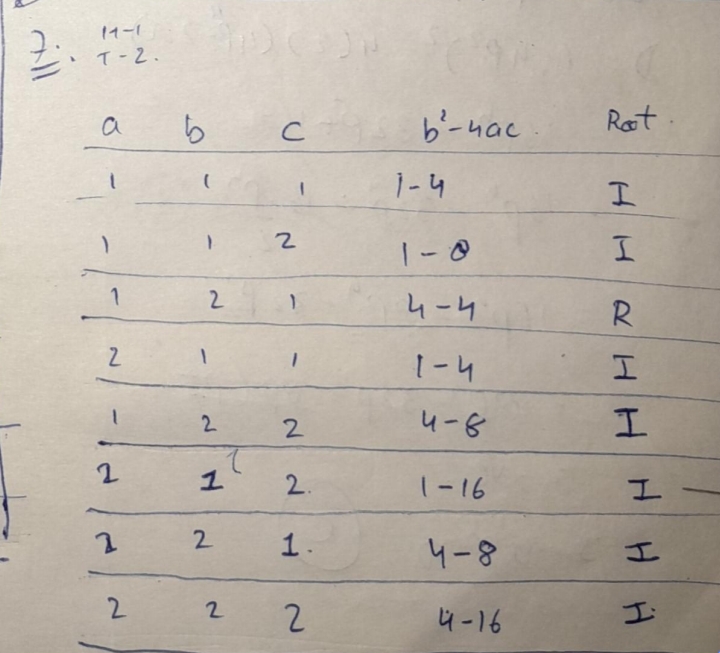 7. H-1
T-2.
a b c b²-4ac. Root.
1 1 1 1-4 I
1 1 2 1-8 I
1 2 1 4-4 R
2 1 1 1-4 I
1 2 2 4-8 I
2 1 2. 1-16 I
2 2 1. 4-8 I
2 2 2 4-16 I